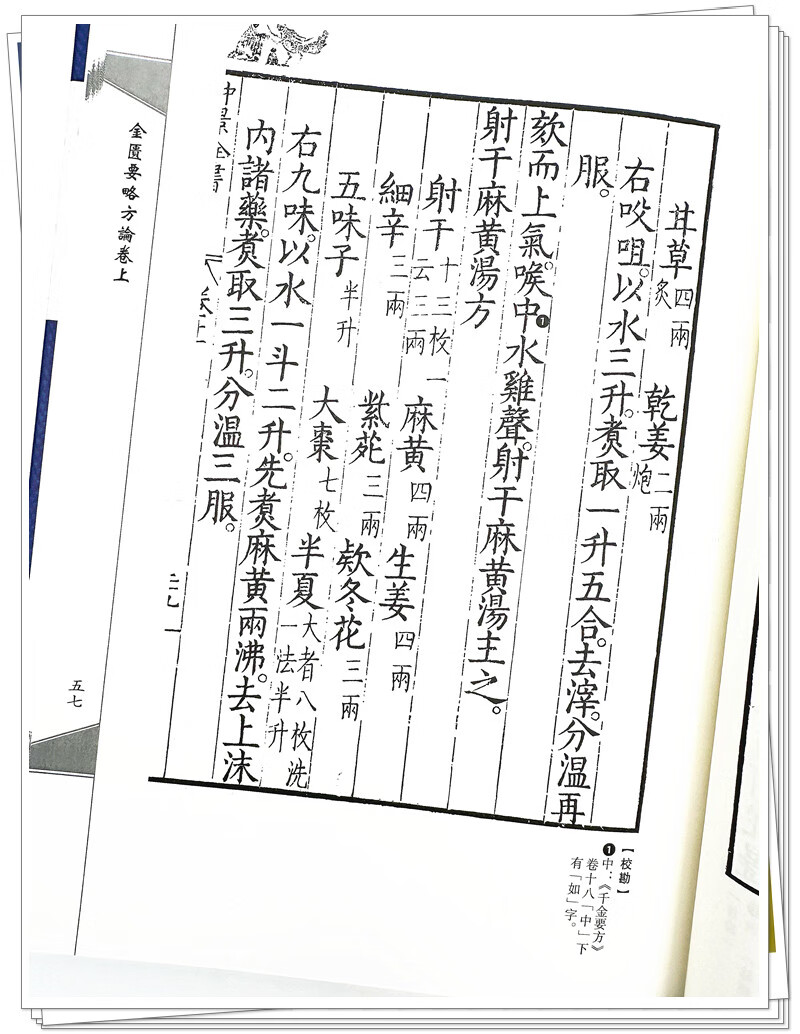 甘草四兩炙　乾姜二兩炮
右㕮咀。以水三升。煮取一升五合。去滓。分溫再
服。
欬而上氣。喉中❶水雞聲。射干麻黃湯主之。
射干麻黃湯方
射干十三枚一云三兩　麻黃四兩　生姜四兩
細辛三兩　紫菀三兩　欵冬花三兩
五味子半升　大棗七枚　半夏大者八枚洗一法半升
右九味。以水一斗二升。先煮麻黃兩沸。去上沫
內諸藥。煮取三升。分溫三服。
仲景全書
金匱要略方論卷上
五七
【校勘】
❶中：《千金要方》
卷十八「中」下
有「如」字。